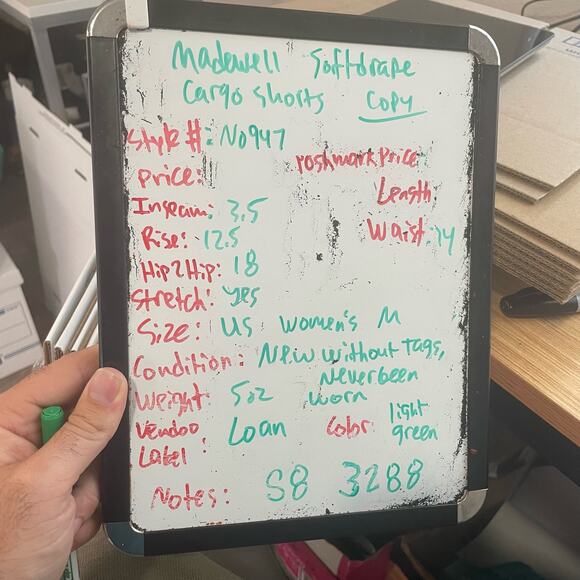 Madewell Softdrape
Cargo Shorts Copy
Style #: NO947
Poshmark Price
Price:
Length
Inseam: 3.5
Waist: 14
Rise: 12.5
Hip2Hip: 18
Stretch: yes
Size: US Women's M
Condition: New without Tags,
Never been
worn
Weight: 5oz
Vendoo Label: Loan
Color: light green
Notes: S8 3288